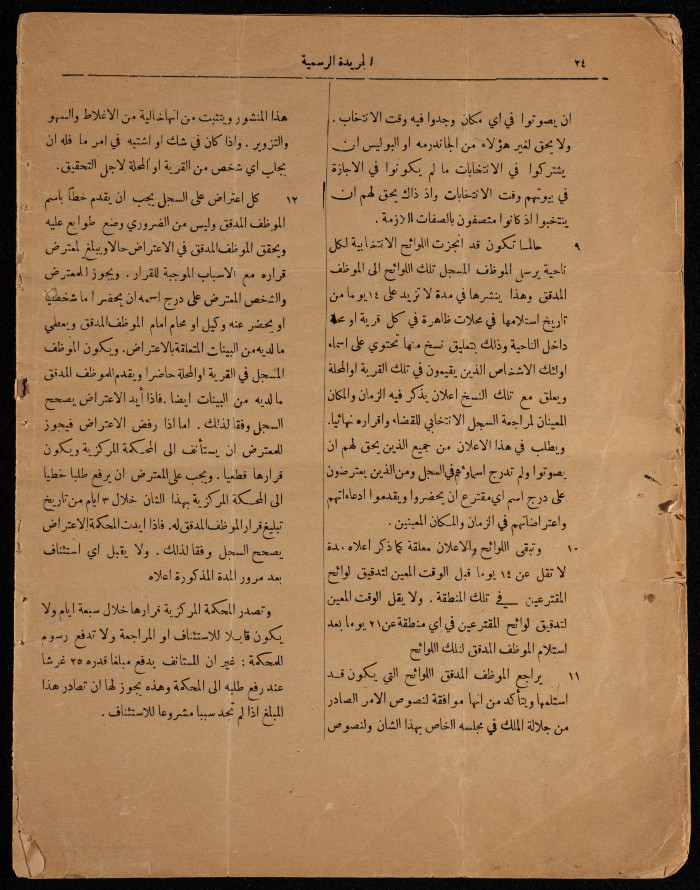 ٢٤
الجريدة الرسمية
ان يصوتوا في اي مكان وجدوا فيه وقت الانتخاب .
ولا يحق لغير هؤلاء من الجاندرمه او البوليس ان
يشتركوا في الانتخابات ما لم يكونوا في الاجازة
في بيوتهم وقت الانتخابات واذ ذاك يحق لهم ان
ينتخبوا اذ كانوا متصفون بالصفات اللازمة .
٩ حالما تكون قد انجزت اللوائح الانتخابية لكل
ناحية يرسل الموظف المسجل تلك اللوائح الى الموظف
المدقق وهذا ينشرها في مدة لا تزيد على ١٤ يوما من
تاريخ استلامها في محلات ظاهرة في كل قرية او محلة
داخل الناحية وذلك بتعليق نسخ منها تحتوي على اسماء
اولئك الاشخاص الذين يقيمون في تلك القرية او المحلة
ويعلق مع تلك النسخ اعلان يذكر فيه الزمان والمكان
المعينان لمراجعة السجل الانتخابي للقضاء واقراره نهائيا.
ويطلب في هذا الاعلان من جميع الذين يحق لهم ان
يصوتوا ولم تدرج اسماؤهم في السجل ومن الذين يعترضون
على درج اسم اي مقترع ان يحضروا ويقدموا ادعاءاتهم
واعتراضاتهم في الزمان والمكان المعينين .
١٠ وتبقى اللوائح والاعلان معلقة كما ذكر اعلاه مدة
لا تقل عن ١٤ يوما قبل الوقت المعين لتدقيق لوائح
المقترعين في تلك المنطقة . ولا يقل الوقت المعين
لتدقيق لوائح المقترعين في اي منطقة عن ٢١ يوما بعد
استلام الموظف المدقق لتلك اللوائح
١١ يراجع الموظف المدقق اللوائح التي يكون قد
استلمها ويتأكد من انها موافقة لنصوص الامر الصادر
من جلالة الملك في مجلسه الخاص بهذا الشان ولنصوص
هذا المنشور ويتثبت من انها خالية من الاغلاط والسهو
والتزوير . واذا كان في شك او اشتبه في امر ما فله ان
يجلب اي شخص من القرية او المحلة لاجل التحقيق .
١٢ كل اعتراض على السجل يجب ان يقدم خطأ باسم
الموظف المدقق وليس من الضروري وضع طوابع عليه
ويحقق الموظف المدقق في الاعتراض حالا ويبلغ لمعترض
قراره مع الاسباب الموجبة للقرار . ويجوز للمعترض
والشخص المعترض على درج اسمه ان يحضر اما شخصيا
او يحضر عنه وكيل او محام امام الموظف المدقق ويعطي
ما لديه من البينات المتعلقة بالاعتراض. ويكون الموظف
المسجل في القرية او المحلة حاضرا ويقدم للموظف المدقق
ما لديه من البينات ايضا. فاذا أيد الاعتراض يصحح
السجل وفقا لذلك . اما اذا رفض الاعتراض فيجوز
للمعترض ان يستأنف الى المحكمة المركزية ويكون
قرارها قطعيا . ويجب على المعترض ان يرفع طلبا خطيا
الى المحكمة المركزية بهذا الشان خلال ٣ ايام من تاريخ
تبليغ قرار الموظف المدقق له. فاذا ايدت المحكمة الاعتراض
يصحح السجل وفقا لذلك . ولا يقبل اي استئناف
بعد مرور المدة المذكورة اعلاه
وتصدر المحكمة المركزية قرارها خلال سبعة ايام ولا
يكون قابلا للاستئناف او المراجعة ولا تدفع رسوم
للمحكمة : غير ان المستانف يدفع مبلغا قدره ٢٥ غرشا
عند رفع طلبه الى المحكمة وهذه يجوز لها ان تصادر هذا
المبلغ اذا لم تجد سببا مشروعا للاستئناف .